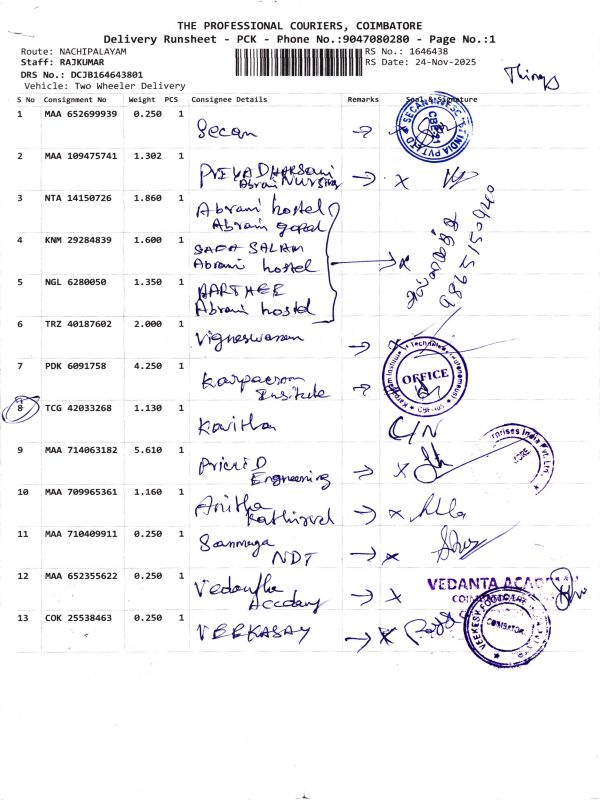 THE PROFESSIONAL COURIERS, COIMBATORE
Delivery Runsheet - PCK - Phone No.:9047080280 - Page No.:1
Route: NACHIPALAYAM RS No.: 1646438
Staff: RAJKUMAR RS Date: 24-Nov-2025
DRS No.: DCJB164643801
Vehicle: Two Wheeler Delivery
Things
S No Consignment No Weight PCS Consignee Details Remarks Seal & Signature
1 MAA 652699939 0.250 1 Secan
2 MAA 109475741 1.302 1 PRIYADHARSANI
Abrami Nursing
3 NTA 14150726 1.860 1 Abrami hostel
Abrami gopal
4 KNM 29284839 1.600 1 SALAM
Abrami hostel
5 NGL 6280050 1.350 1 AARTHEE
Abrami hostel
9865150940
6 TRZ 40187602 2.000 1 Vigneswaran
7 PDK 6091758 4.250 1 Karpagam
Institute
OFFICE
8 TCG 42033268 1.130 1 Kavitha C/N
9 MAA 714063182 5.610 1
Engineering
10 MAA 709965361 1.160 1 Anitha
Kathirvel
11 MAA 710409911 0.250 1 Sanmuga
NDT
12 MAA 652355622 0.250 1 Vedantha
Accdamy
VEDANTA
13 COK 25538463 0.250 1 VEEKASAY
COIMBATORE